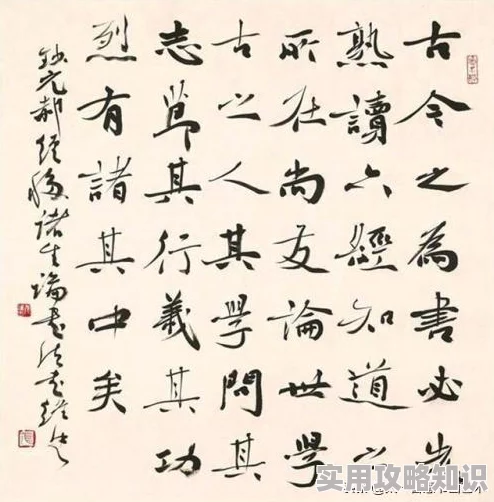 古今之為書必先
熟讀六經知道之
所在尚友論世學
古之人其學問其
志節其行義其功
烈有諸其中矣
鈔元郝經移諸生論書法書
实用攻略知识